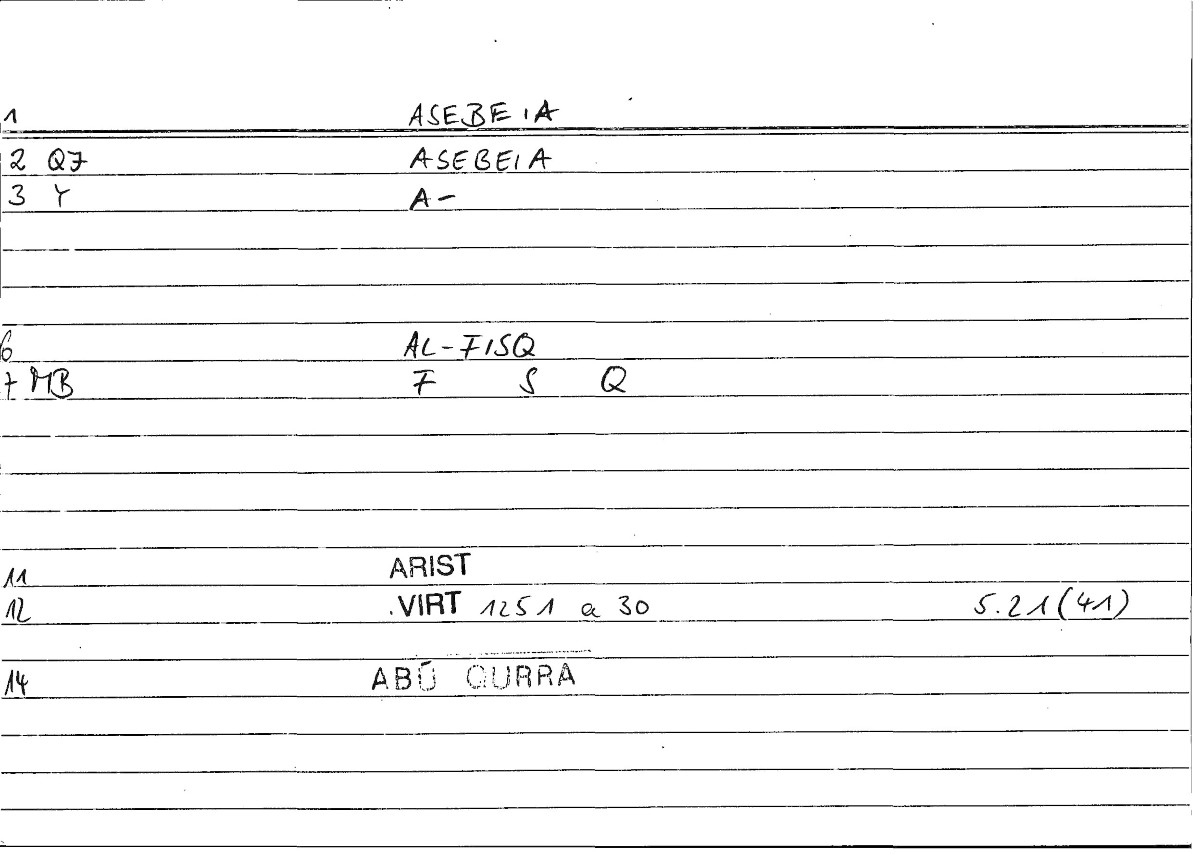 1 ASEBEIA
2 QF ASEBEIA
3 Y A-
6 AL-FISQ
7 MB F S Q
11 ARIST
12 .VIRT 1251 a 30 5.21(41)
14 ABŪ QURRA